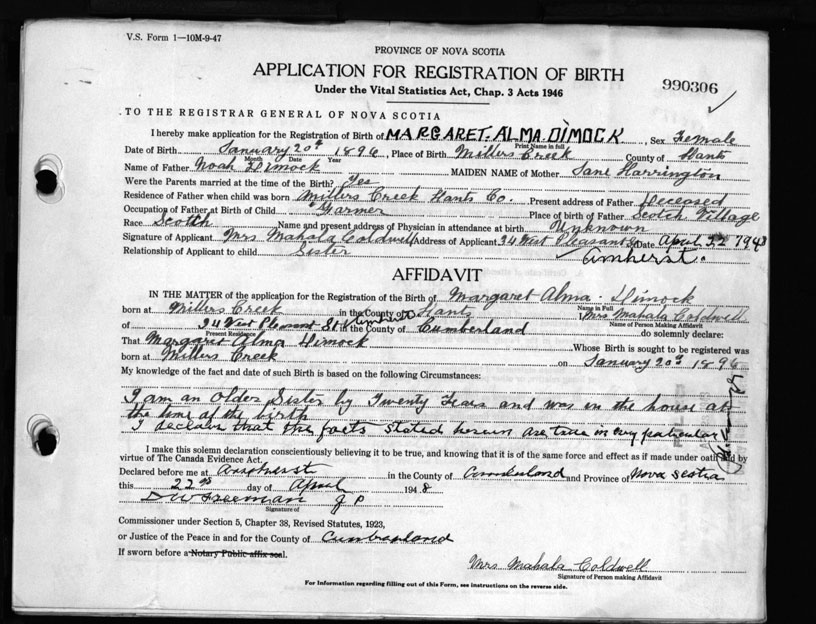 V.S. Form 1—10M-9-47
PROVINCE OF NOVA SCOTIA
APPLICATION FOR REGISTRATION OF BIRTH
990306
Under the Vital Statistics Act, Chap. 3 Acts 1946
TO THE REGISTRAR GENERAL OF NOVA SCOTIA
I hereby make application for the Registration of Birth of MARGARET. ALMA. DIMOCK, Sex Female
Print Name in full
Date of Birth January 20th 1896, Place of Birth Millers Creek County of Hants
Month Date Year
Name of Father Noah Dimock MAIDEN NAME of Mother Jane Harrington
Were the Parents married at the time of the Birth? Yes
Residence of Father when child was born Millers Creek Hants Co. Present address of Father Deceased
Occupation of Father at Birth of Child Farmer Place of birth of Father Scotch Village
Race Scotch Name and present address of Physician in attendance at birth Unknown
Signature of Applicant Mrs Mahala Coldwell Address of Applicant 34 West Pleasant St Date April 22 1948
Relationship of Applicant to child Sister Amherst.
AFFIDAVIT
IN THE MATTER of the application for the Registration of the Birth of Margaret Alma. Dimock
Name in Full
born at Millers Creek in the County of Hants Mrs Mahala Coldwell
Name of Person Making Affidavit
of 34 West Pleasant St Amherst in the County of Cumberland do solemnly declare:
Present Residence
That Margaret Alma Dimock Whose Birth is sought to be registered was
born at Millers Creek on January 20th 1896
My knowledge of the fact and date of such Birth is based on the following Circumstances:
I am an older Sister by Twenty Years and was in the house at
the time of the birth
I declare that the facts stated herein are true in every particular
I make this solemn declaration conscientiously believing it to be true, and knowing that it is of the same force and effect as if made under oath and by
virtue of The Canada Evidence Act.
Declared before me at Amherst in the County of Cumberland and Province of Nova Scotia
this 22nd day of April 1948
D W Freeman J P
Signature of
Commissioner under Section 5, Chapter 38, Revised Statutes, 1923,
or Justice of the Peace in and for the County of Cumberland
If sworn before a Notary Public affix seal.
Mrs Mahala Coldwell
Signature of Person making Affidavit
For Information regarding filling out of this Form, see instructions on the reverse side.